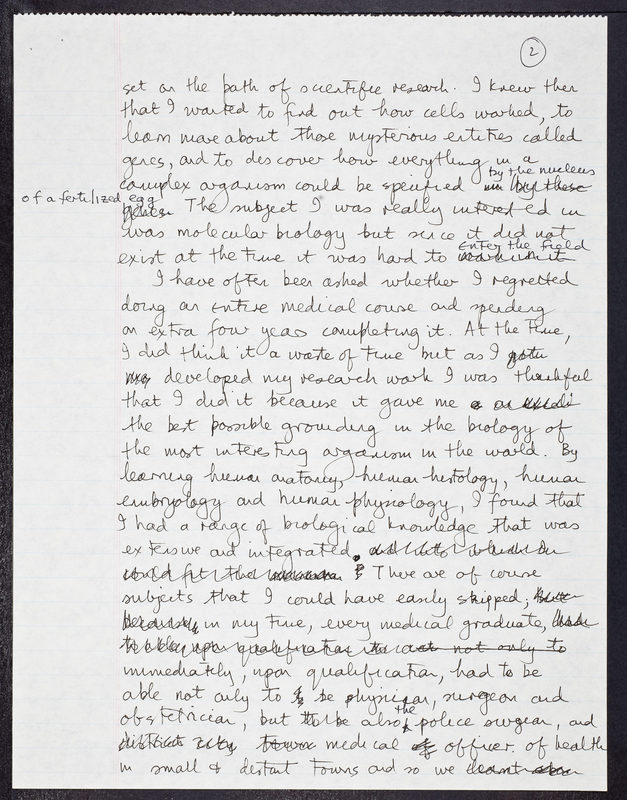 2
set on the path of scientific research. I knew then
that I wanted to find out how cells worked, to
learn more about those mysterious entities called
genes, and to discover how everything in a
by the nucleus
complex organism could be specified in by these
of a fertilized egg
genes. The subject I was really interested in
was molecular biology but since it did not
enter the field
exist at the time it was hard to work in it
I have often been asked whether I regretted
doing an entire medical course and spending
an extra four years completing it. At the time,
I did think it a waste of time but as I
my developed my research work I was thankful
that I did it because it gave me a
the best possible grounding in the biology of
the most interesting organism in the world. By
learning human anatomy, human histology, human
embryology and human physiology, I found that
I had a range of biological knowledge that was
extensive and integrated.
could fit the There are of course
subjects that I could have easily skipped;
because in my time, every medical graduate, had
to be able, upon qualification to act not only to
immediately, upon qualification, had to be
able not only to be physician, surgeon and
the
obstetrician, but to be also police surgeon, and
district city town medical officer of health
in small & distant towns and so we learnt